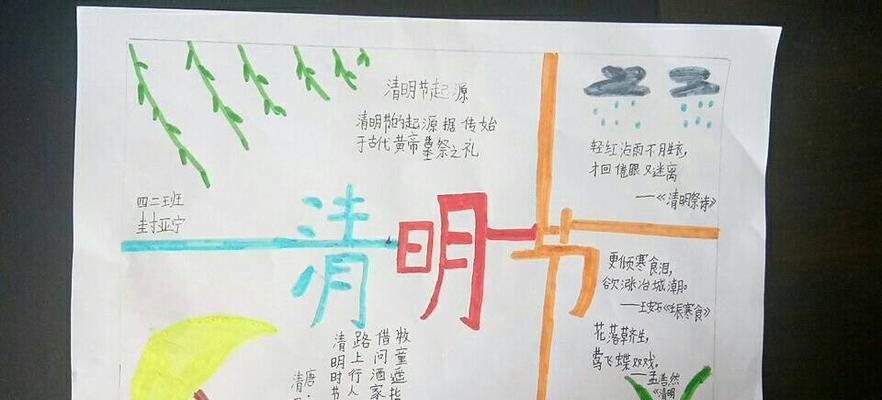 清明节起源
清明节的起源据传始
于古代黄帝墓祭之礼
四二班
封亚宁
清明节
轻红沾雨不胜衣,
才回倦眼又迷离
——《清明祭诗》
更倾寒食泪,
欲涨冶城潮。
——王安石《壬辰寒食》
花落草齐生,
莺飞蝶双戏,
——孟浩然
《清明
清
唐·
清明时节
路上行人
借问酒家
牧童遥指